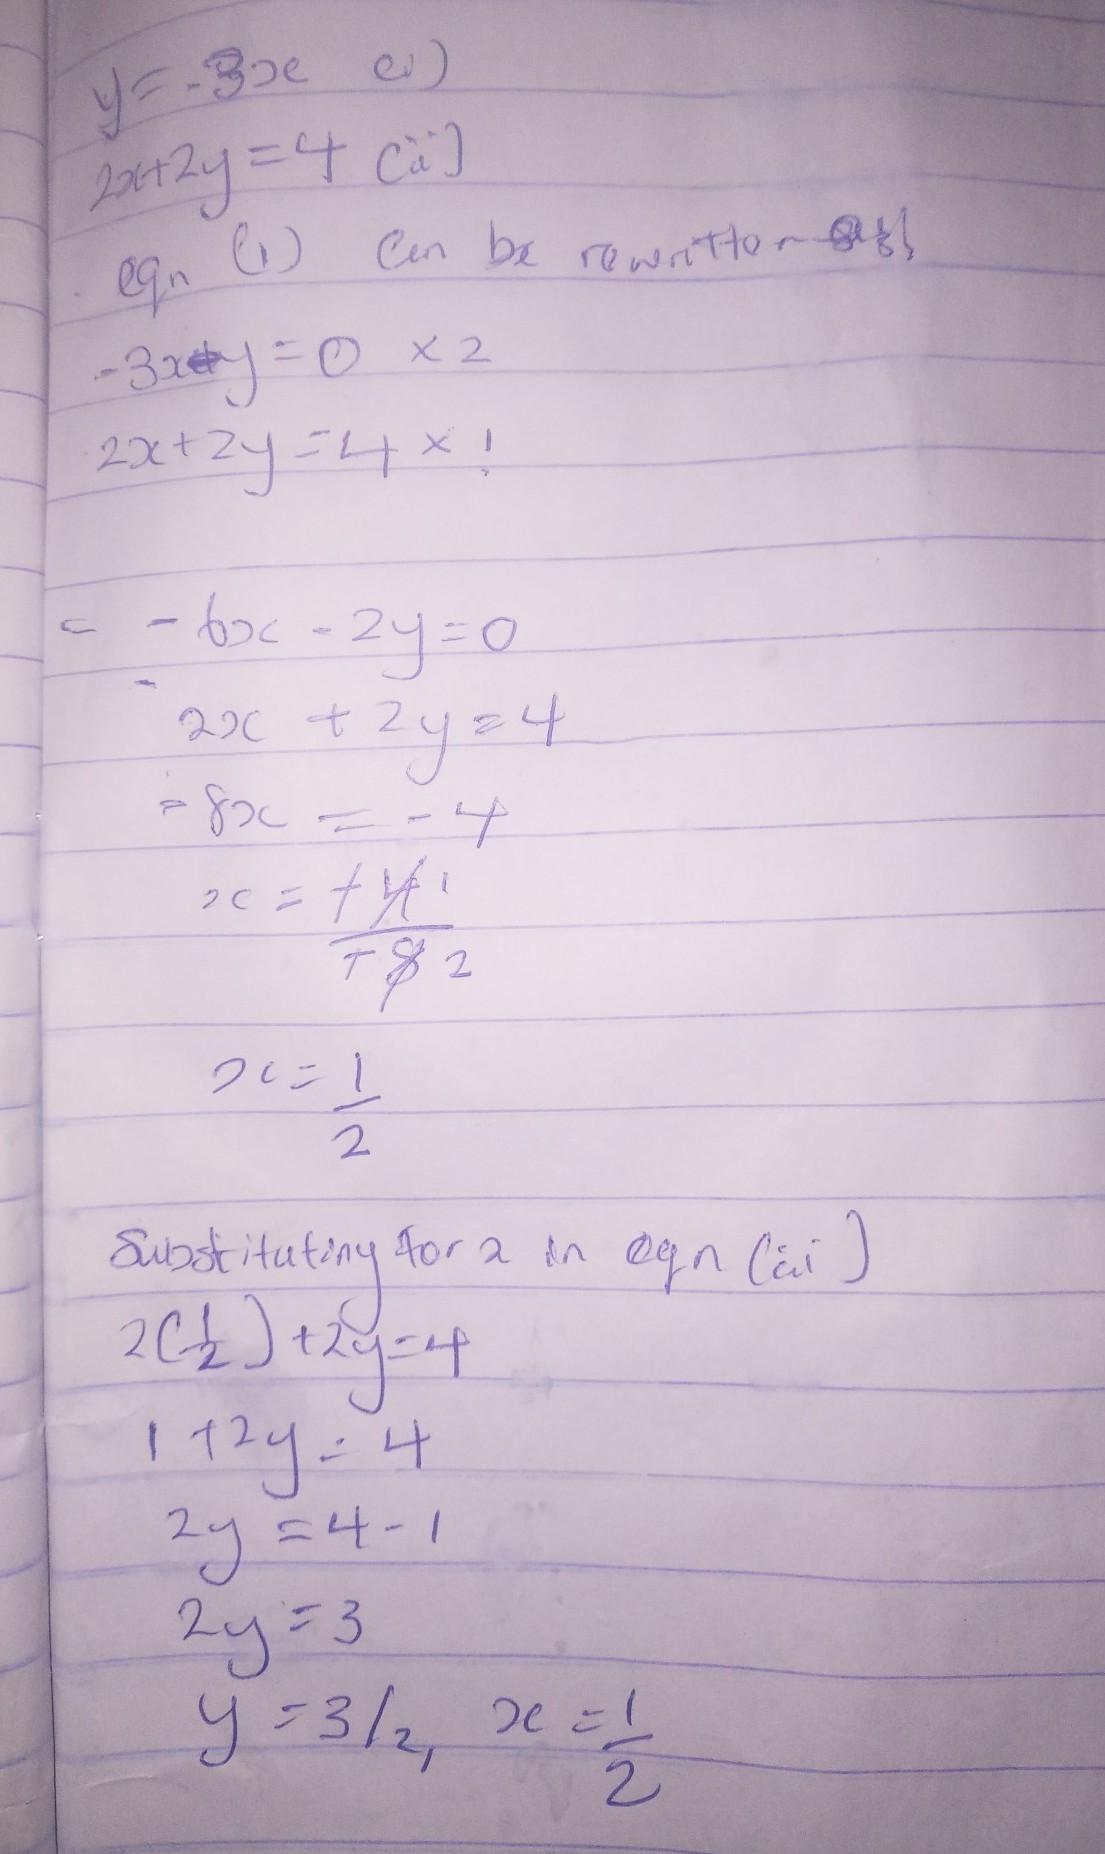 y = -3x (i)
2x+2y=4 (ii)
eqn (i) can be rewritten as
-3x-y=0 ×2
2x+2y=4 ×1
= -6x - 2y=0
-
2x + 2y=4
-8x = -4
x = +4 1
+8 2
x = 1
2
Substituting for x in eqn (ii)
2(1/2)+2y=4
1 +2y = 4
2y = 4-1
2y = 3
y = 3/2, x = 1
2